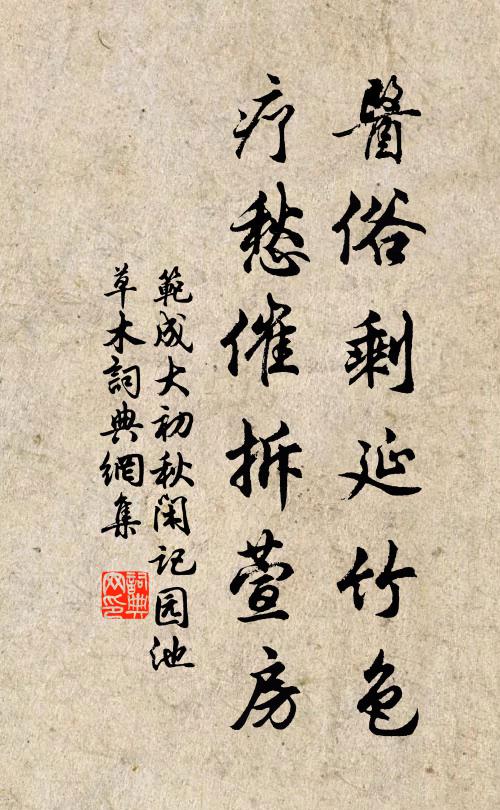 醫俗剩延竹色
疗愁催拆萱房
範成大初秋闲记园池
草木詞典網集
詞典
网印